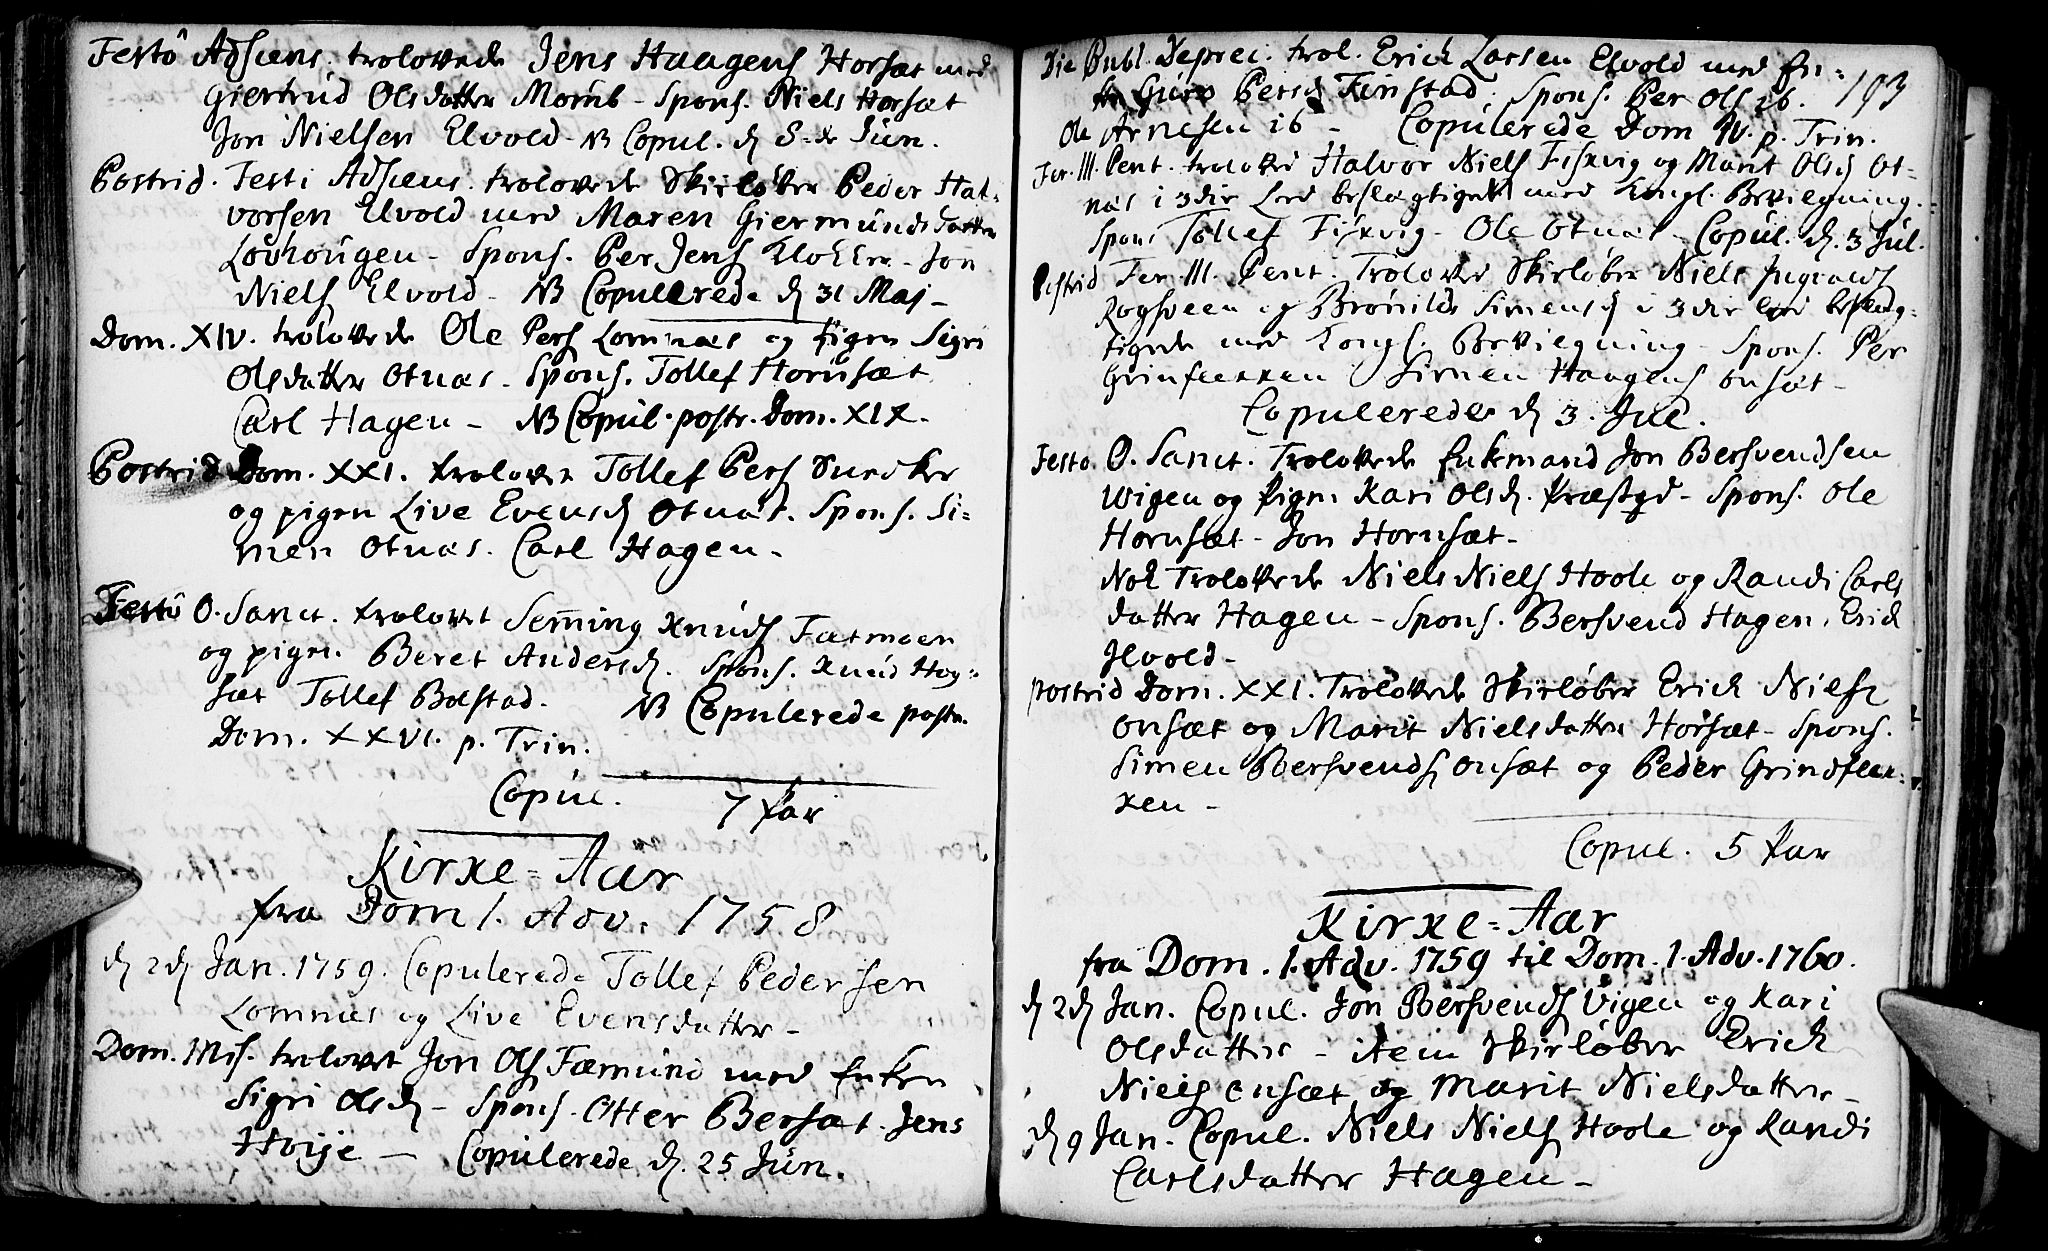 Festo Adscens. trolovede Jens Haagens Horsæt med
Giertrud Olsdatter Momb - Spons. Niels Horsæt
Jon Nielsen Elvold - NB Copul. d. 8de Jun.
Postrid. Festi Adscens. trolovede Skirløber Peder Hal-
vorsen Elvold med Maren Giermunds datter
Løvhougen - Spons. Per Jens Klokker - Jon
Niels Elvold - NB Copulerede d 31 Maj -
Dom. XIV. trolovede Ole Pers Lomnæs og pigen Sigri
Olsdatter Otnæs - Spons. Tollef Hornsæt
Carl Hagen - NB Copul. postr. Dom. XIX.
Postrid Dom. XXI. trolovet Tollef Pers
og pigen Live Evensd Otnæs. Spons. Si-
men Otnæs. Carl Hagen -
Festo O. Sanct. trolovet Semming Knuds Fæmoen
og pigen Beret Andersd. Spons. Knud Hog-
sæt Tollef Bolstad. NB Copulerede postr.
Dom. XXVI. p. Trin.
Copul. 7 Par
Kirke-Aar
fra Dom 1. Adv. 1758
d 2d Jan. 1759. Copulerede Tollef Pedersen
Lomnæs og Live Evensdatter -
Dom. Mis. trolovet Jon Ols Fæmund med Enken
Sigri Olsd - Spons. Otter Bersæt. Jens
Hoije - Copulerede d. 25 Jun.
193
Die Publ. Deprec. trol. Erich Larsen Elvold med En-
Guro Persd Finstad. Spons. Per Ols ib.
Ole Arnesen ib - Copulerede Dom IV. p. Trin.
Fer. III. Pent. trolovet Halvor Niels Fiskvig og Marit Olsd Ot-
næs i 3die Led beslægtiget med Kongl. Bevilgning.
Spons Tollef Fiskvig - Ole Otnæs - Copul. d. 3 Jul.
Postrid Fer. III. Pent. Trolovet Skirløber Niels Ingvalds
Rogsveen og Brønild Simensd i 3die Led beslæg-
tigede med Kongl. Bevilgning - Spons. Per
Grinflekken Simen Haagens Onsæt -
Copulerede d 3. Jul.
Festo. O. Sanct. Trolovede Enkemand Jon Bersvendsen
Wigen og pigen Kari Olsd. Præstgd - Spons. Ole
Hornsæt - Jon Hornsæt -
Nok Trolovede Niels Niels Hoole og Randi Carls
datter Hagen - Spons. Bersvend Hagen. Erich
Elvold -
postrid Dom. XXI. Trolovede Skirløber Erich Niels
Onsæt og Marit Nielsdatter Horsæt - Spons.
Simen Bersvends Onsæt og Peder Grindflek-
ken -
Copul. 5 Par
Kirke-Aar
fra Dom. 1. Adv. 1759 til Dom. 1. Adv. 1760.
d 2d Jan. Copul. Jon Bersvends Vigen og Kari
Olsdatter - item Skirløber Erich
Niels Onsæt og Marit Nielsdatter -
d 9 Jan. Copul. Niels Niels Hoole og Randi
Carlsdatter Hagen -